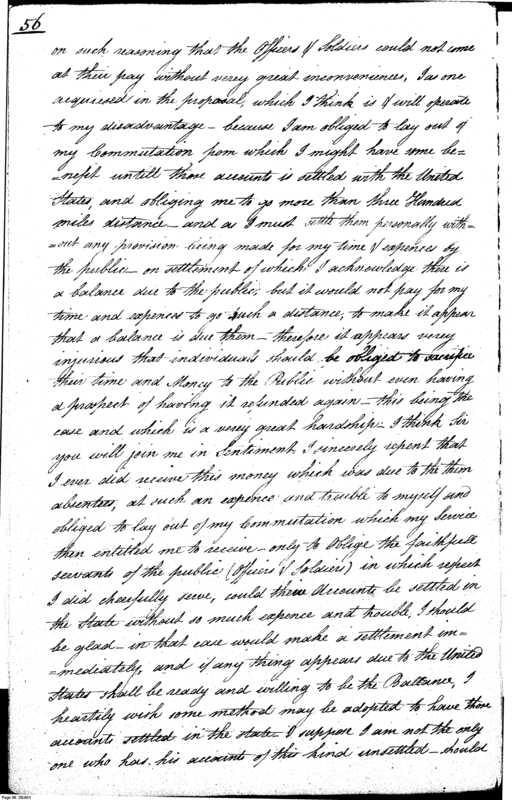 56
on such reasoning that the Officers & Soldiers could not come
at their pay without verey great inconveniences, I as one
acquiesed in the proposal, which I think is & will operate
to my disadvantage – because I am obliged to lay out of
my Commutation from which I might have some be=
=nefit untill those accounts is settled with the United
States, and obliging me to go more than three Hundred
miles distance – and as I must settle them personally with=
=out any provision being made for my time & expenses by
the public – on settlement of which I acknowledge there is
a balance due to the public; but it would not pay for my
time and expences to go such a distance, to make it appear
that a balance is due them – therefore it appears verey
injurious that individuals should be obliged to sacrifice
their time and Money to the Public without even having
a prospect of having it refunded again – this being the
case and which is a very great hardship – I think Sir
you will join me in Sentiment I sincerely repent that
I ever did receive this money which was due to the them
absentees, at such an expence and trouble to myself and
obliged to lay out of my Commutation which my Service
then entitled me to receive – only to Oblige the faithfull
servants of the public (Officers & Soldiers) in which respect
I did cheerfully serve, could these Accounts be settled in
the State without so much expence and trouble, I should
be glad – in that case would make a settlement im=
=mediately, and if any thing appears due to the United
States shall be ready and willing to be the Ballance, I
heartily wish some method may be adopted to have those
accounts settled in the state – I suppose I am not the only
one who has his accounts of this kind unsettled – should